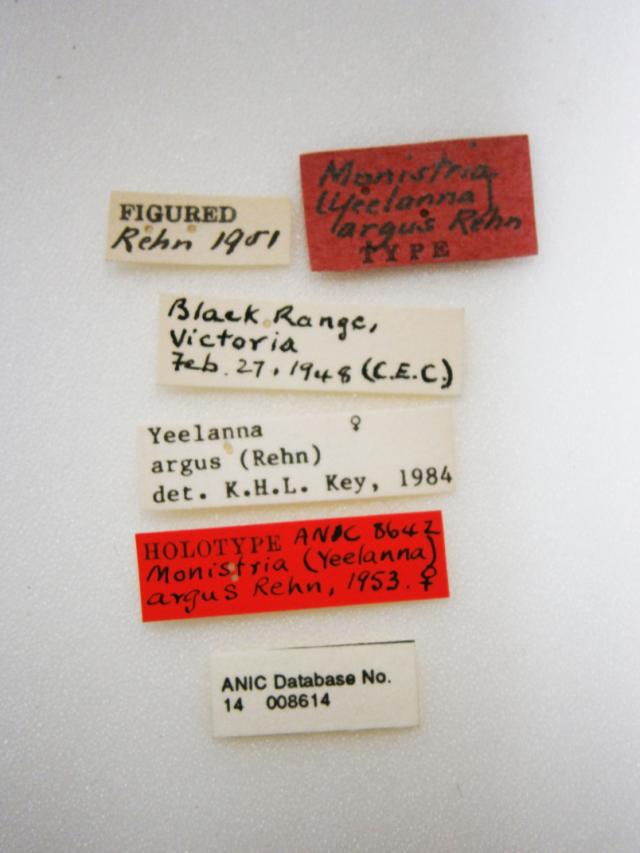 FIGURED
Rehn 1951
Monistria
(Yeelanna)
argus Rehn
TYPE
Black Range,
Victoria
Feb. 27, 1948 (C.E.C.)
Yeelanna ♀
argus (Rehn)
det. K.H.L. Key, 1984
HOLOTYPE ANIC 8642
Monistria (Yeelanna)
argus Rehn, 1953. ♀
ANIC Database No.
14 008614